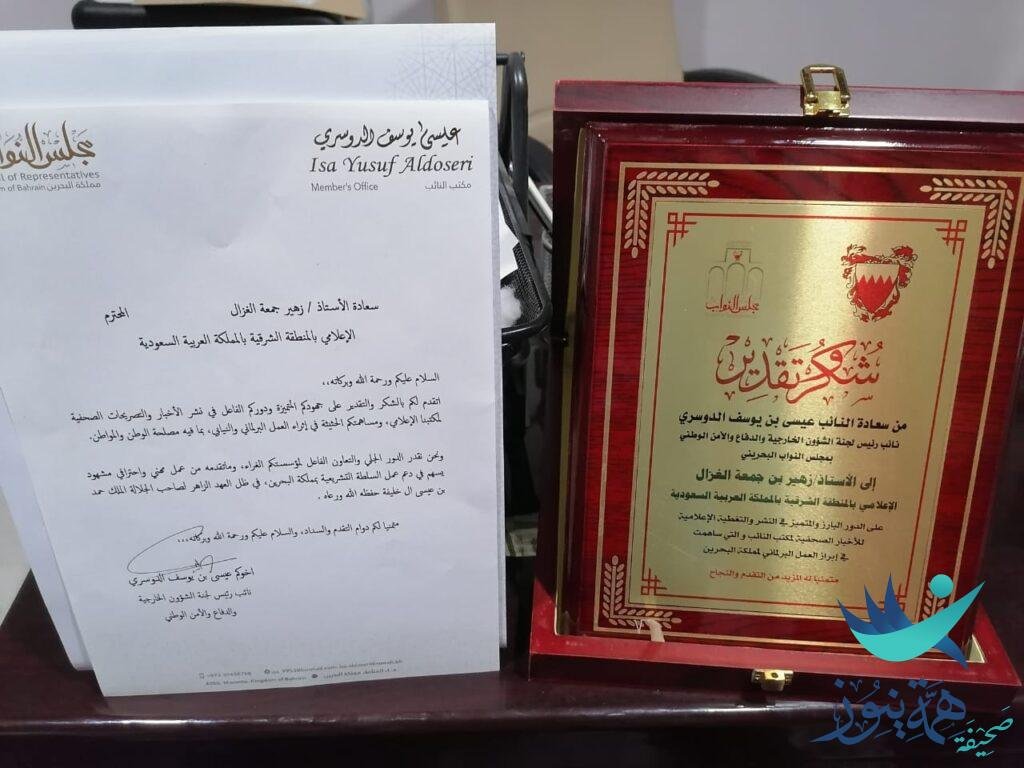 مجلس النواب
of Representatives
of Bahrain مملكة البحرين
عيسى يوسف الدوسري
Isa Yusuf Aldoseri
Member's Office مكتب النائب
سعادة الأستاذ / زهير جمعة الغزال المحترم
الإعلامي بالمنطقة الشرقية بالمملكة العربية السعودية
السلام عليكم ورحمة الله وبركاته،،
اتقدم لكم بالشكر والتقدير على جهودكم المتميزة ودوركم الفاعل في نشر الأخبار والتصريحات الصحفية
لمكتبنا الإعلامي، ومساهمتكم الحثيثة في إثراء العمل البرلماني والنيابي، بما فيه مصلحة الوطن والمواطن.
ونحن نقدر الدور الجلي والتعاون الفاعل لمؤسستكم الغراء، وماتقدمه من عمل مهني واحترافي مشهود
يسهم في دعم عمل السلطة التشريعية بمملكة البحرين، في ظل العهد الزاهر لصاحب الجلالة الملك حمد
بن عيسى ال خليفة حفظه الله ورعاه.
متمنيا لكم دوام التقدم والسداد، والسلام عليكم ورحمة الله وبركاته،،،
اخوكم عيسى بن يوسف الدوسري
نائب رئيس لجنة الشؤون الخارجية
والدفاع والأمن الوطني
Manama, Kingdom of Bahrain
مجلس النواب
شكر وتقدير
من سعادة النائب عيسى بن يوسف الدوسري
نائب رئيس لجنة الشؤون الخارجية والدفاع والأمن الوطني
بمجلس النواب البحريني
إلى الأستاذ/زهير بن جمعة الغزال
الإعلامي بالمنطقة الشرقية بالمملكة العربية السعودية
على الدور البارز والمتميز في النشر والتغطية الإعلامية
للأخبار الصحفية لمكتب النائب و التي ساهمت
في إبراز العمل البرلماني لمملكة البحرين
متمنيا له المزيد من التقدم والنجاح
صَحِيفَة هِمَّة نيُوز